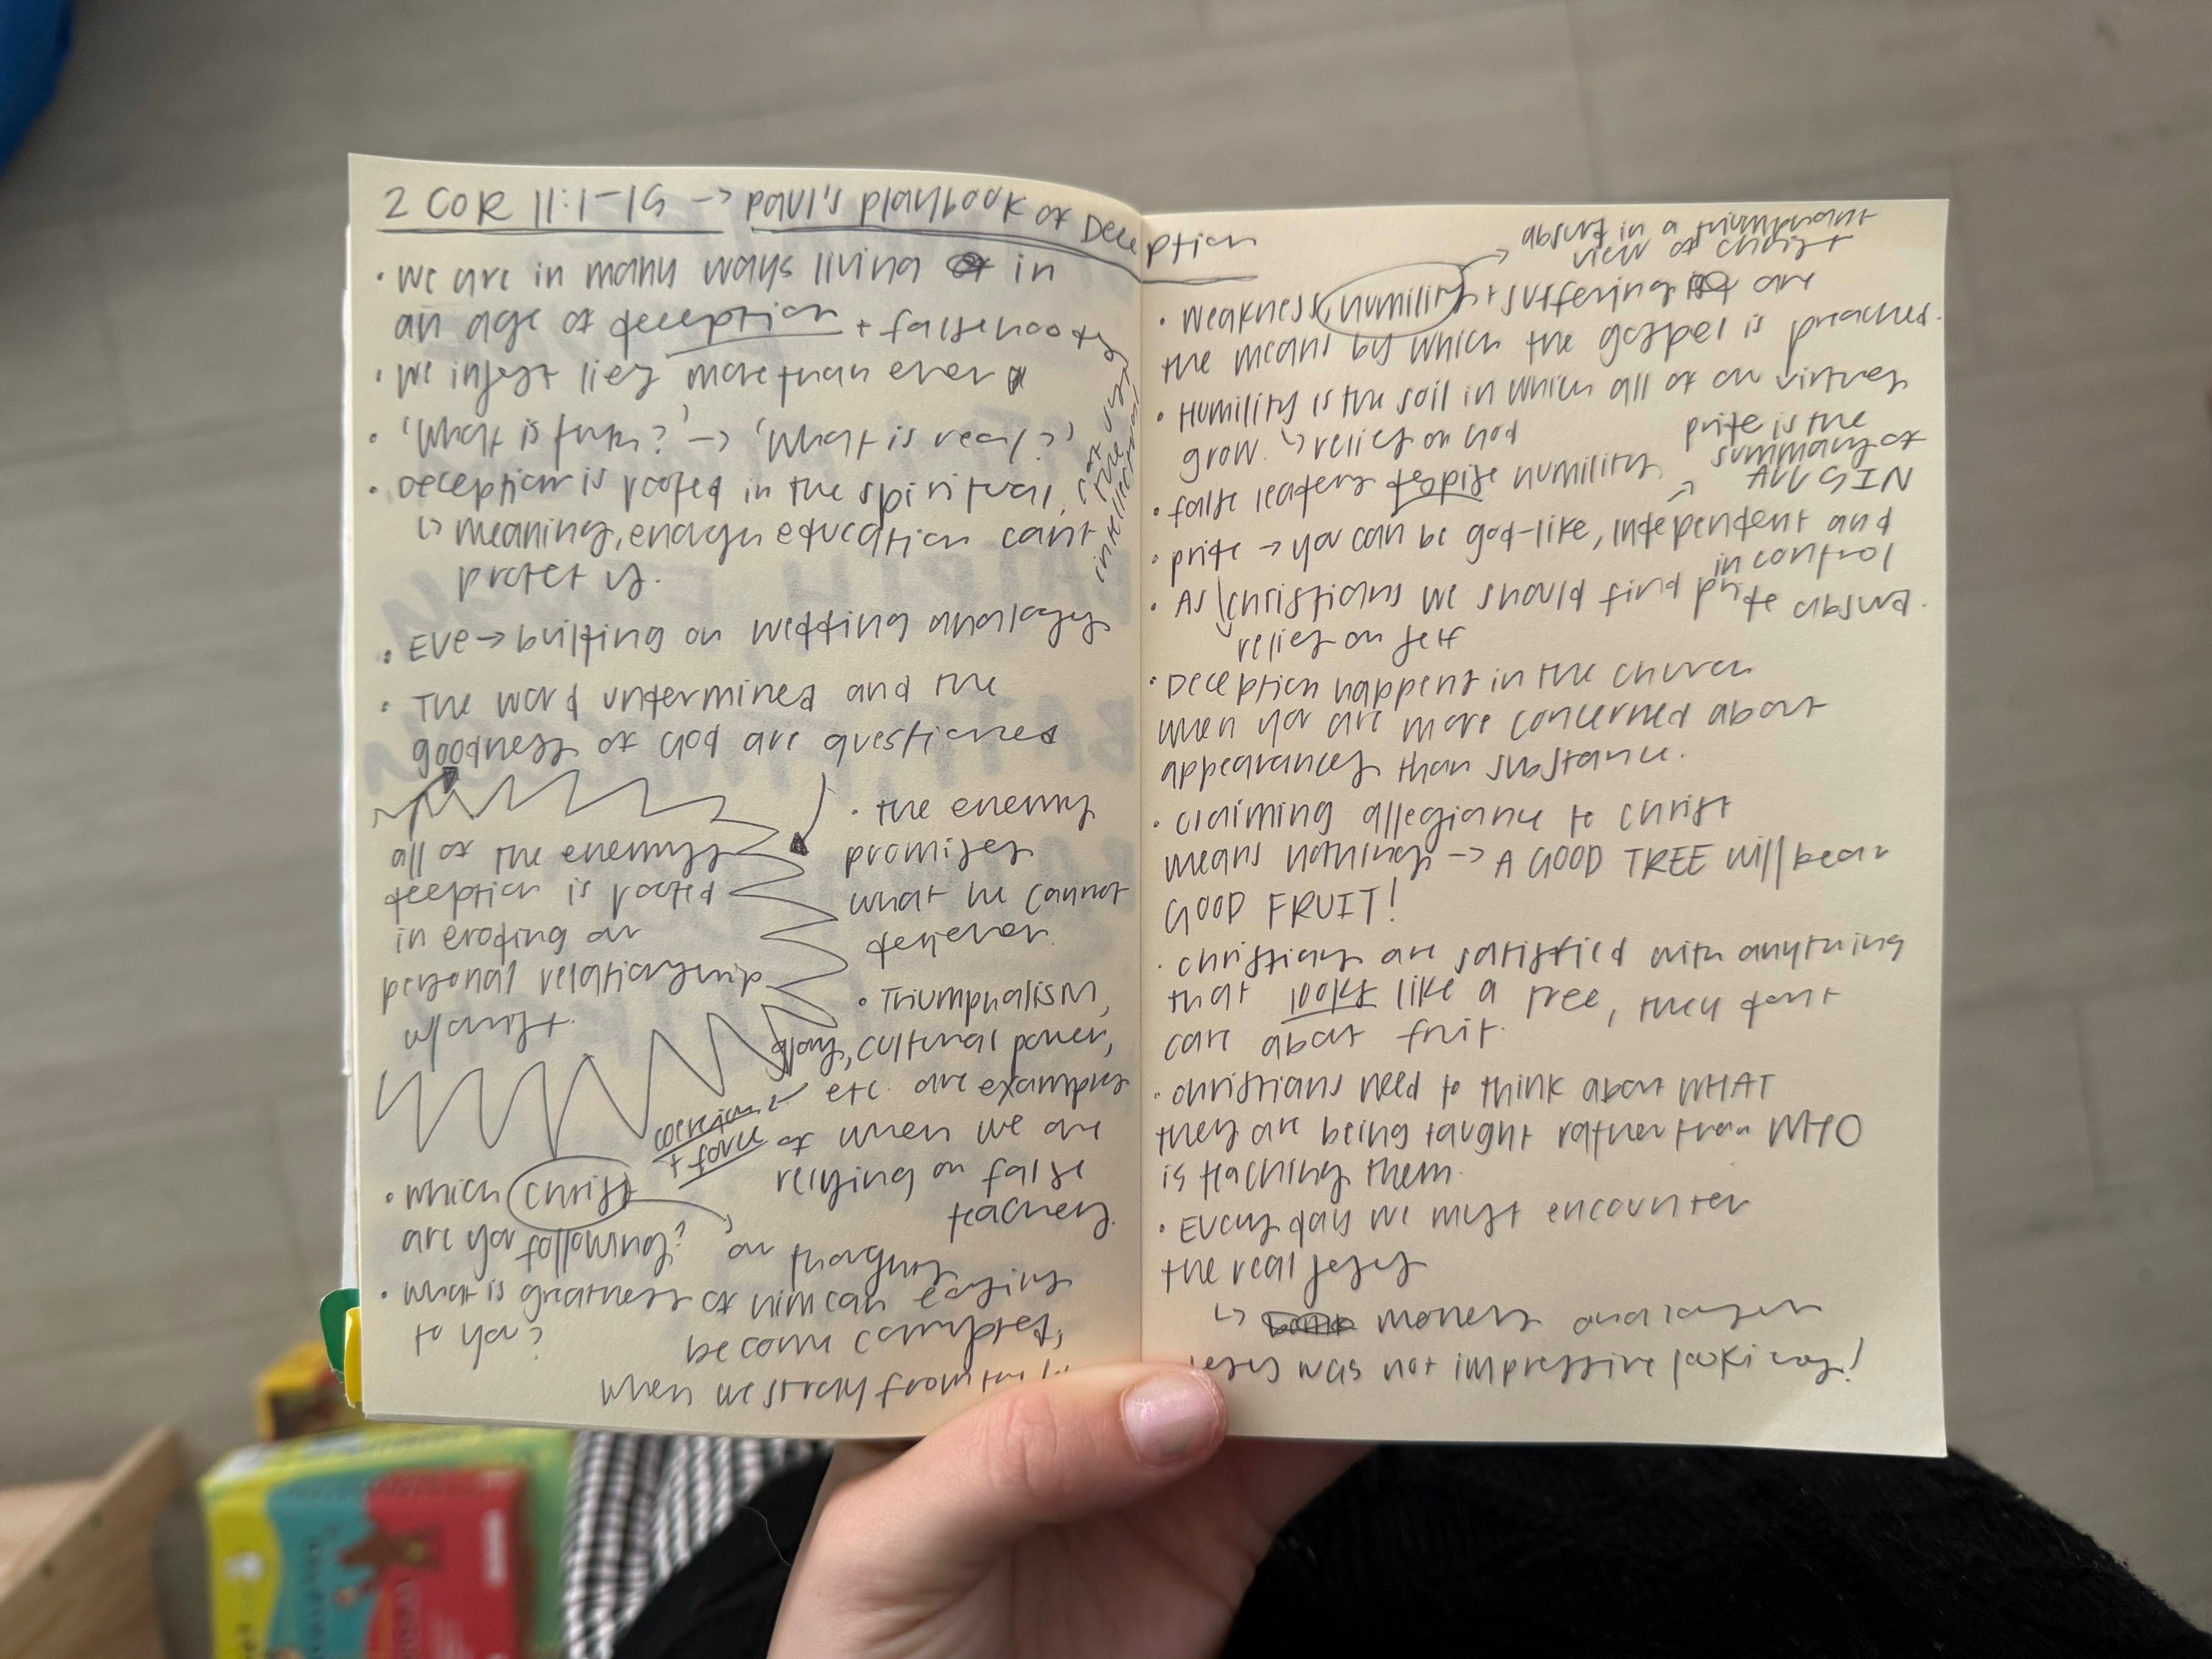 2 COR 11:1-15 → Paul's playbook of Deception
• we are in many ways living in
an age of deception + falsehoods
• we ingest lies more than ever
• 'what is truth?' → 'what is real?'
• Deception is rooted in the spiritual,
not
the
intellectual
↳ meaning, enough education can't
protect us.
• EVE → building on wedding analogy
• The word undermined and the
goodness of God are questioned
all of the enemy's
deeption is rooted
in eroding our
personal relationship
w/christ.
• the enemy
promises
what he cannot
deliever.
• Triumphalism,
glory, cultural power,
etc. are examples
coercion
+ force
of when we are
relying on false
teachers.
• which christ
are you following?
our thoughts
• what is greatness of him can easily
to you?
become corrupted,
when we stray from
absurd in a triumphant
view of christ
• weakness, humility + suffering are
the means by which the gospel is preached.
• Humility is the soil in which all of our virtues
grow. ↳ relies on God
• false leaders despise humility.
pride is the
summary of
ALL SIN
• pride → you can be god-like, independent and
in control
• As christians we should find pride absurd.
relies on self
• Deception happens in the church
when you are more concerned about
appearances than substance.
• claiming allegiance to christ
means nothing → A GOOD TREE will bear
GOOD FRUIT!
• christians are satisfied with anything
that looks like a tree, they don't
care about fruit.
• christians need to think about WHAT
they are being taught rather than WHO
is teaching them.
• Every day we must encounter
the real jesus
↳ money analayer
jesus was not impressive looking!